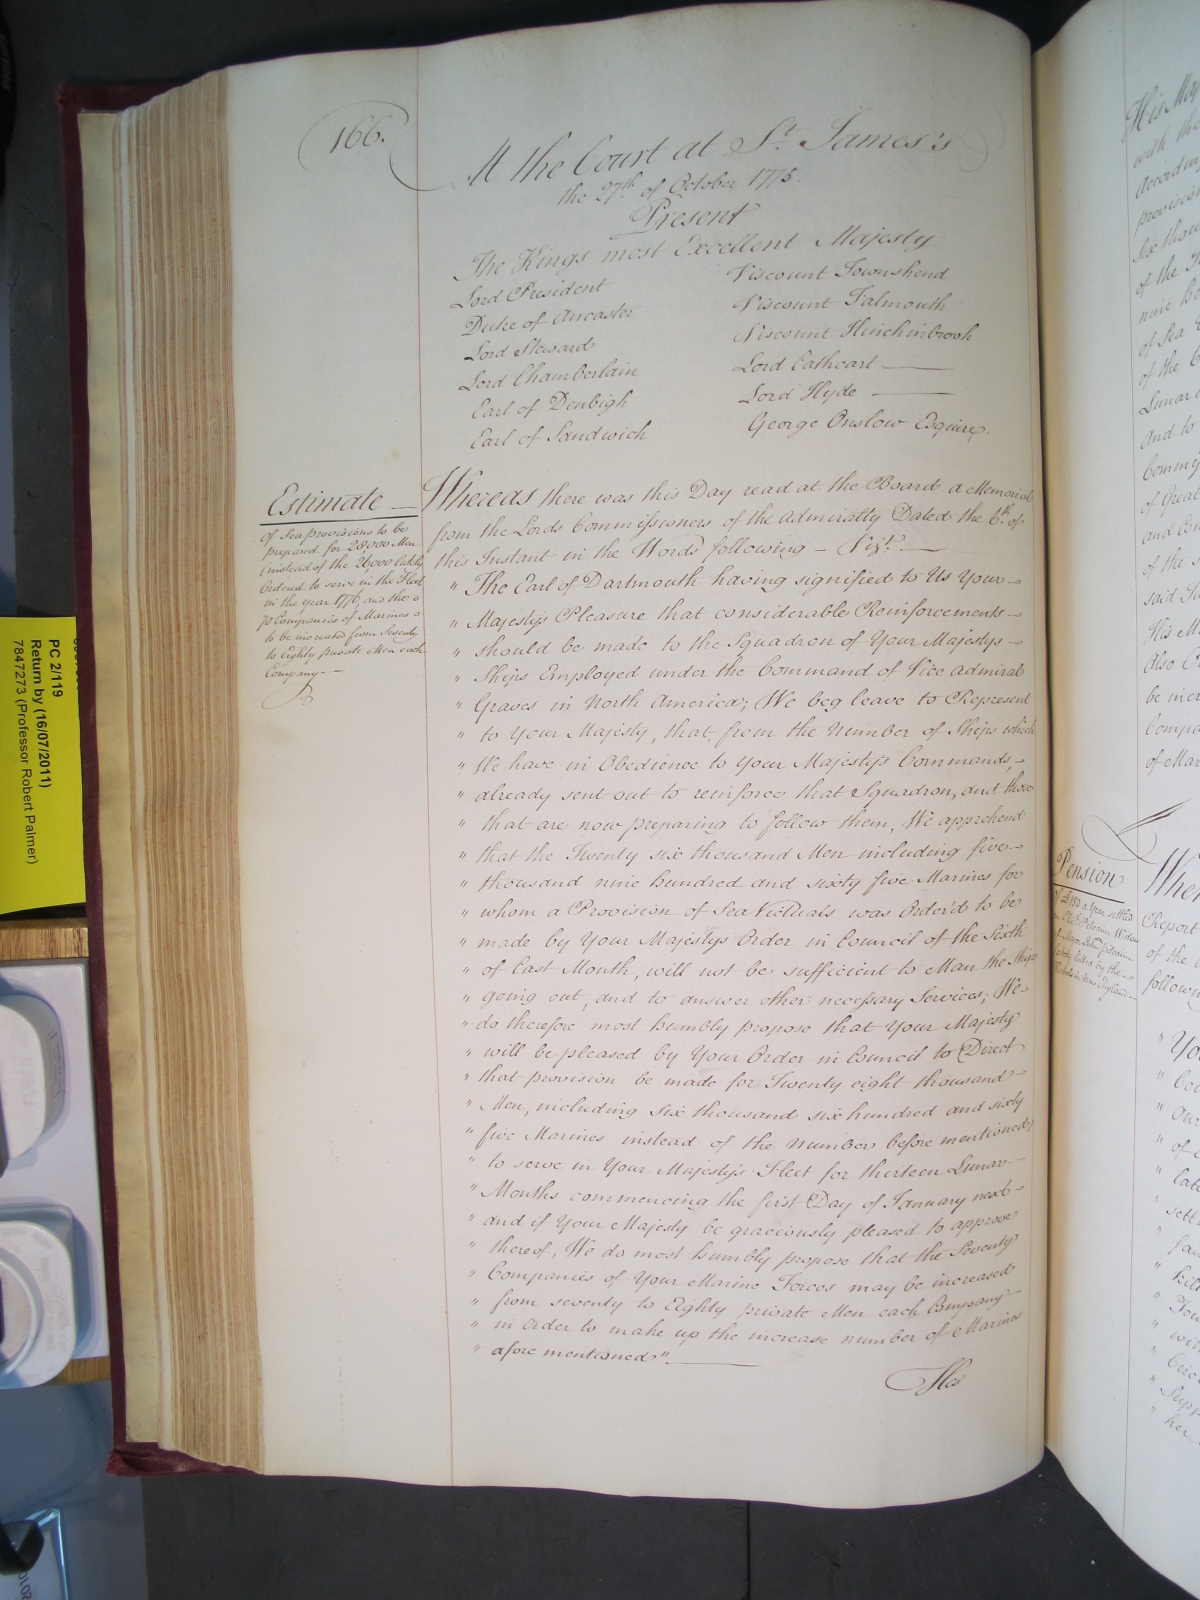 166.
At the Court at St. James's
the 27th of October 1775.
Present
The Kings most Excellent Majesty
Lord President
Duke of Ancaster
Lord Steward
Lord Chamberlain
Earl of Denbigh
Earl of Sandwich
Viscount Townshend
Viscount Falmouth
Viscount Hinchinbrook
Lord Cathcart
Lord Hyde
George Onslow Esquire.
Estimate
of Sea provisions to be
prepared for 28000 Men
(instead of the 26,000 lately
Ordered to serve in the Fleet
in the year 1776, and the
70 Companies of Marines
to be increased from Seventy
to Eighty private Men each
Company
Whereas there was this Day read at the Board a Memorial
from the Lords Commissioners of the Admiralty Dated the 6th of
this Instant in the Words following - Vizt.
" The Earl of Dartmouth having signified to Us Your
" Majestys Pleasure that considerable Reinforcements
" should be made to the Squadron of Your Majestys
" Ships Employed under the Command of Vice Admiral
" Graves in North America; We beg leave to Represent
" to Your Majesty, that from the Number of Ships which
" We have in Obedience to Your Majesty's Commands,
" already sent out to reinforce that Squadron, and those
" that are now preparing to follow them, We apprehend
" that the Twenty six thousand Men including five
" thousand nine hundred and sixty five Marines for
" whom a Provision of Sea Victuals was Order'd to be
" made by Your Majestys Order in Council of the Sixth
" of Last Month, will not be sufficient to Man the Ships
" going out, and to answer other necessary Services; We
" do therefore most humbly propose that Your Majesty
" will be pleased by Your Order in Council to Direct
" that provision be made for Twenty eight thousand
" Men, including six thousand six hundred and sixty
" five Marines instead of the Number before mentioned,
" to serve in Your Majesty's Fleet for thirteen Lunar
" Months commencing the first Day of January next
" and if Your Majesty be graciously pleased to approve
" thereof, We do most humbly propose that the Seventy
" Companies of Your Marine Forces may be increased
" from seventy to Eighty private Men each Company
" in Order to make up the increase number of Marines
" afore mentioned".
His
PC 2/119
Return by (16/07/2011)
7847273 (Professor Robert Palmer)
His Maj
with the
provision
Six thou
of the
nine
of Sea
of the
Lunar
And to
Commis
of Great
and
of the
said
His M
Also
be incr
Compa
of Mar
Pension
of £150 a Year settled
Wher
Report
of the
following
" Yo
" our
" of
" late
" sett
" kill
" with
" Supp
" her